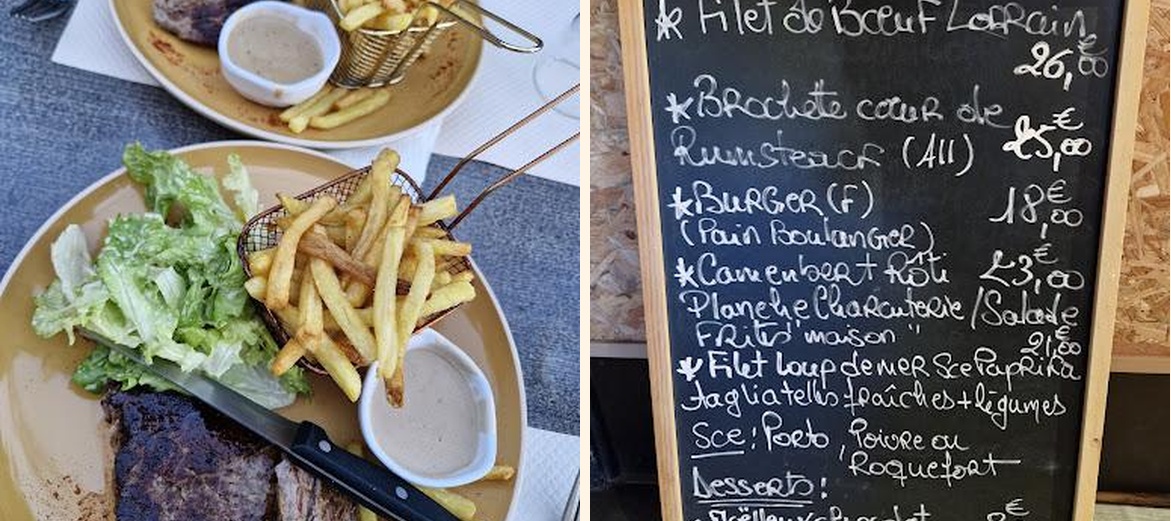 * Filet de Bœuf Lorrain
26,00€
*Brochette cœur de
Rumsteack (All) 25,00€
*Burger (F) 18,00€
(Pain Boulanger)
*Camembert Rôti 23,00€
Planche Charcuterie/Salade
Frites "maison" 21,00€
*Filet Loup de mer Sce Paprika
Tagliatelles fraîches + légumes
Sce : Porto, Poivre ou
Roquefort
Desserts :
chocolat 8€